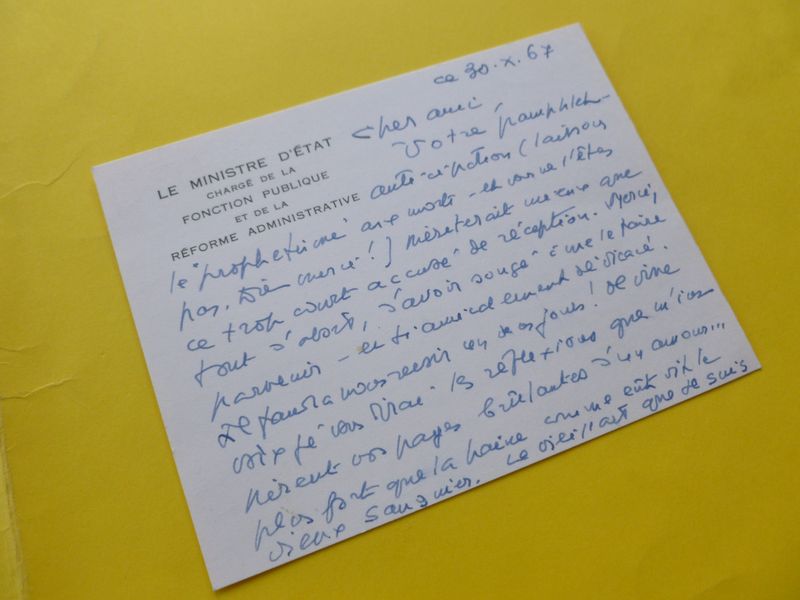 ce 30.X.67
LE MINISTRE D'ÉTAT
CHARGÉ DE LA
FONCTION PUBLIQUE
ET DE LA
RÉFORME ADMINISTRATIVE
Cher ami
Votre pamphlet-
anticipation (laissons
le "prophétisme" aux morts - et vous ne l'êtes
pas, Dieu merci!) mériterait mieux que
ce trop court accusé de réception. Merci,
tout d'abord, d'avoir songé à me le faire
parvenir - et si amicalement dédicacé.
Il faudra nous revoir un de ces jours! De vive
voix je vous dirai les réflexions que m'ins-
pirent vos pages brûlantes d'un amour...
plus fort que la haine comme eût dit le
vieux Sangnier. Le vieillard que je suis